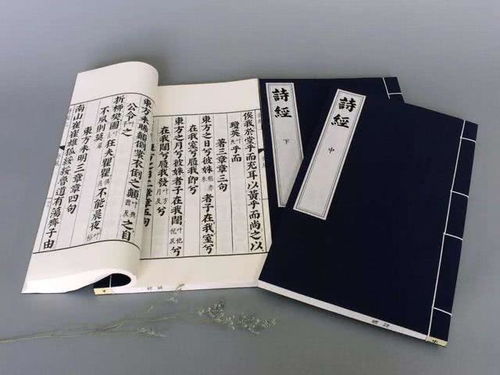 俟我於堂乎而充耳以黃乎而尚之以
瓊英乎而
著三章章三句
東方之日兮彼姝者子在我室兮
在我室兮履我即兮
東方之月兮彼姝者子在我闥兮
在我闥兮履我發兮
二章章五句
東方未晞顛倒裳衣倒之顛之自
公令之
折柳樊圃狂夫瞿瞿不能辰夜
不夙則莫
東方未明三章章四句
南山崔崔雄狐綏綏魯道有蕩齊子由
詩經
下
詩經
中